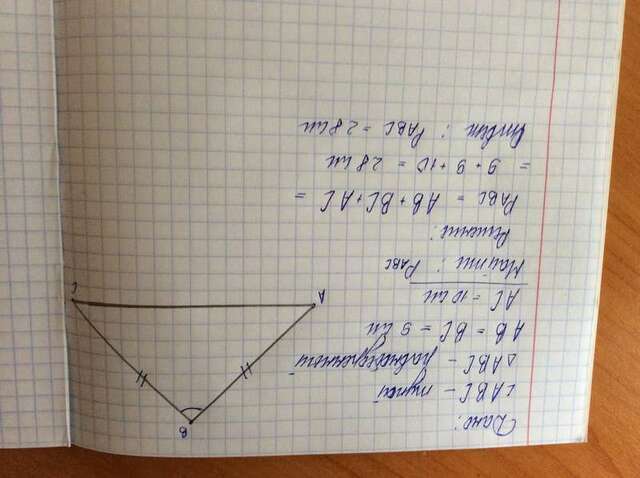 Дано:
∠ABC – тупой
△ABC – равнобедренный
AB = BC = 9 см
AC = 10 см
Найти: PABC
Решение:
PABC = AB + BC + AC =
= 9 + 9 + 10 = 28 см
Ответ: PABC = 28 см
B
A
C